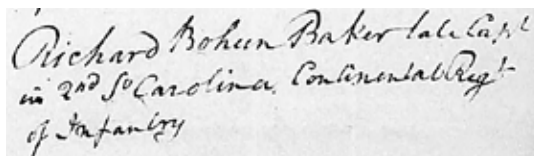 Richard Bohun Baker late Capt
in 2nd So Carolina Continental Regt
of Infantry